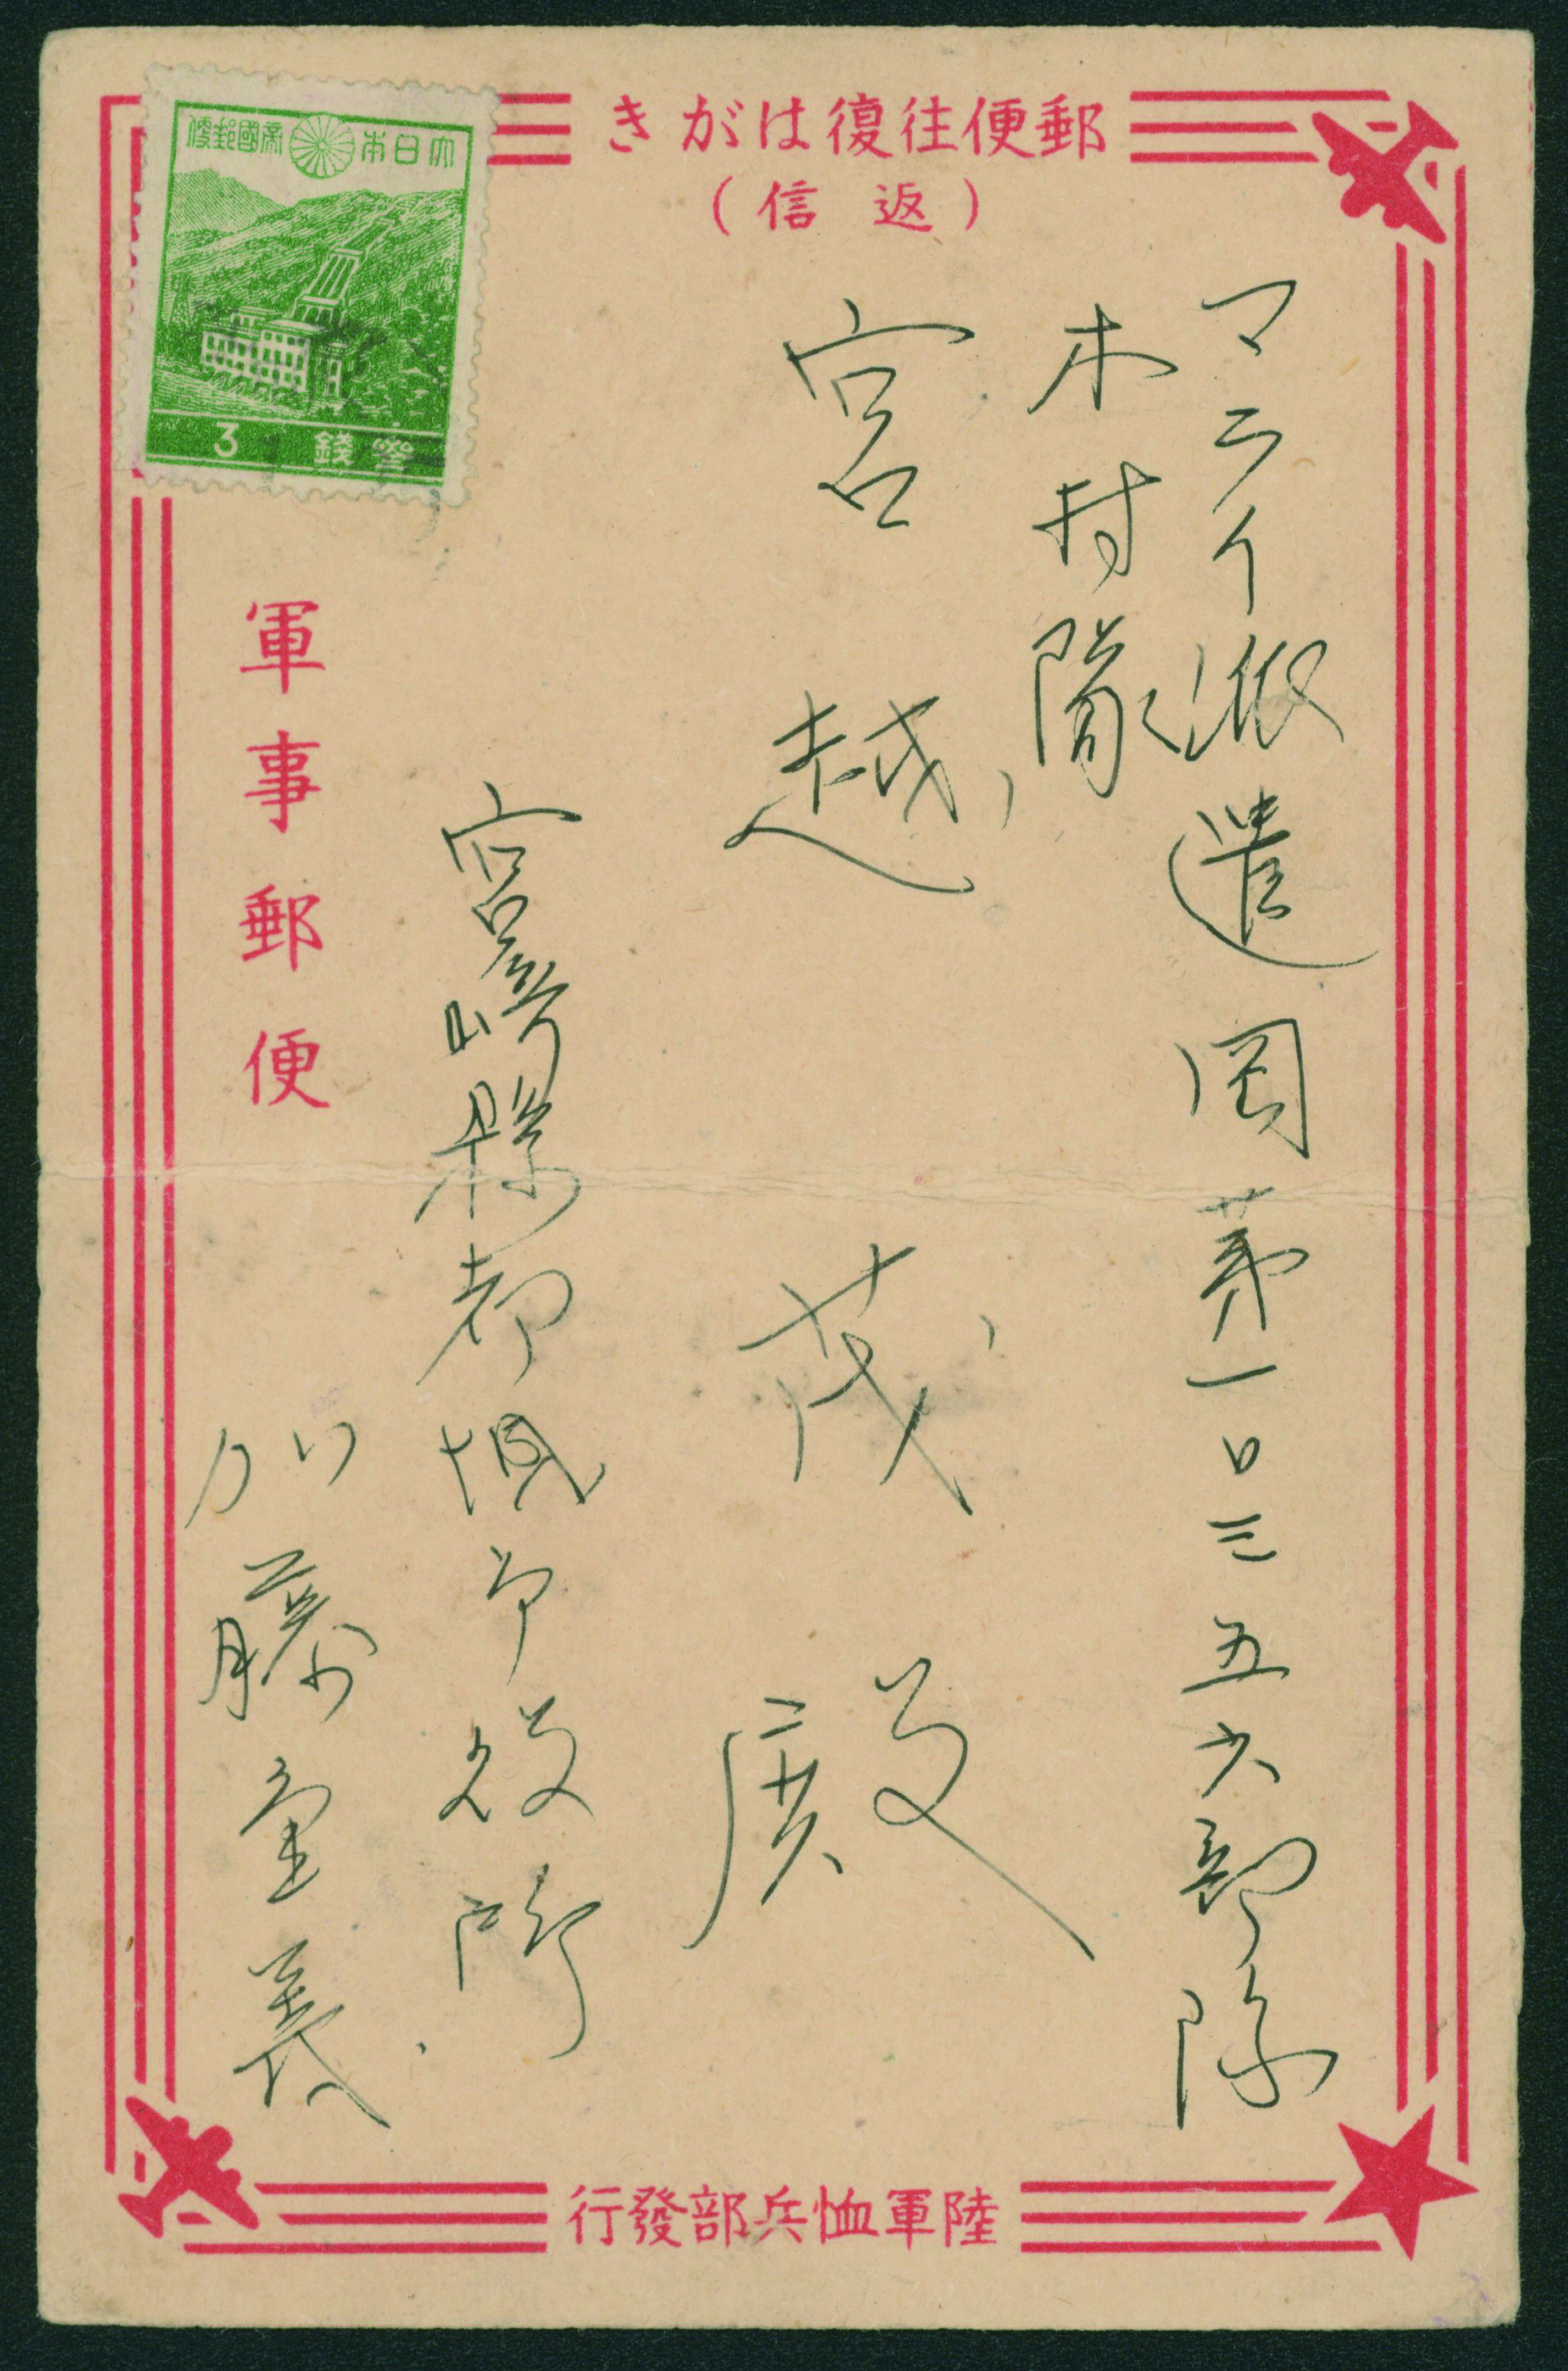 郵便往復はがき
(返信)
大日本帝國郵便
3 錢参
マライ派遣岡第一〇三五六部隊
木村隊
宮越茂殿
宮崎縣都城市役所
加藤重義
軍事郵便
陸軍恤兵部發行